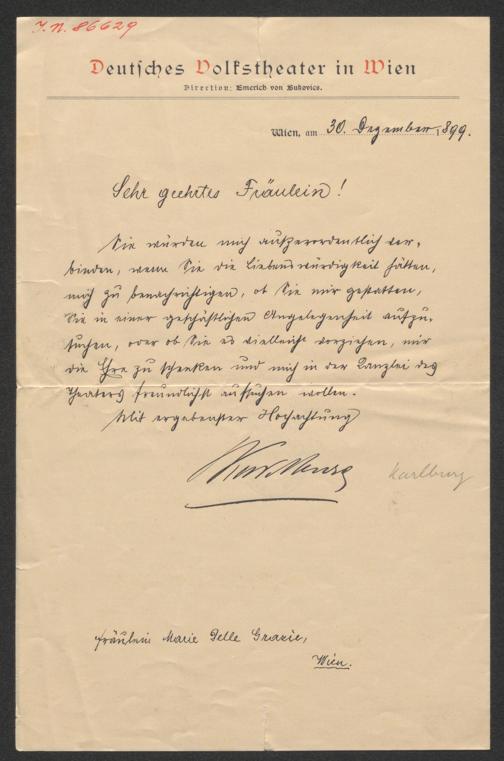 J.N. 86629
Deutsches Volkstheater in Wien
Direction: Emerich von Bukovics.
Wien, am 30. Dezember 1899.
Sehr geehrtes Fräulein!
Sie würden mich außerordentlich ver-
binden, wenn Sie die Liebenswürdigkeit hätten,
mich zu benachrichtigen, ob Sie mir gestatten,
Sie in einer geschäftlichen Angelegenheit aufzu-
suchen, oder ob Sie es vielleicht vorziehen, mir
die Ehre zu schenken und mich in der Kanzlei des
Theaters freundlichst aufsuchen wollen.
Mit ergebenster Hochachtung
Karlburg
Fräulein Marie Delle Grazie,
Wien.